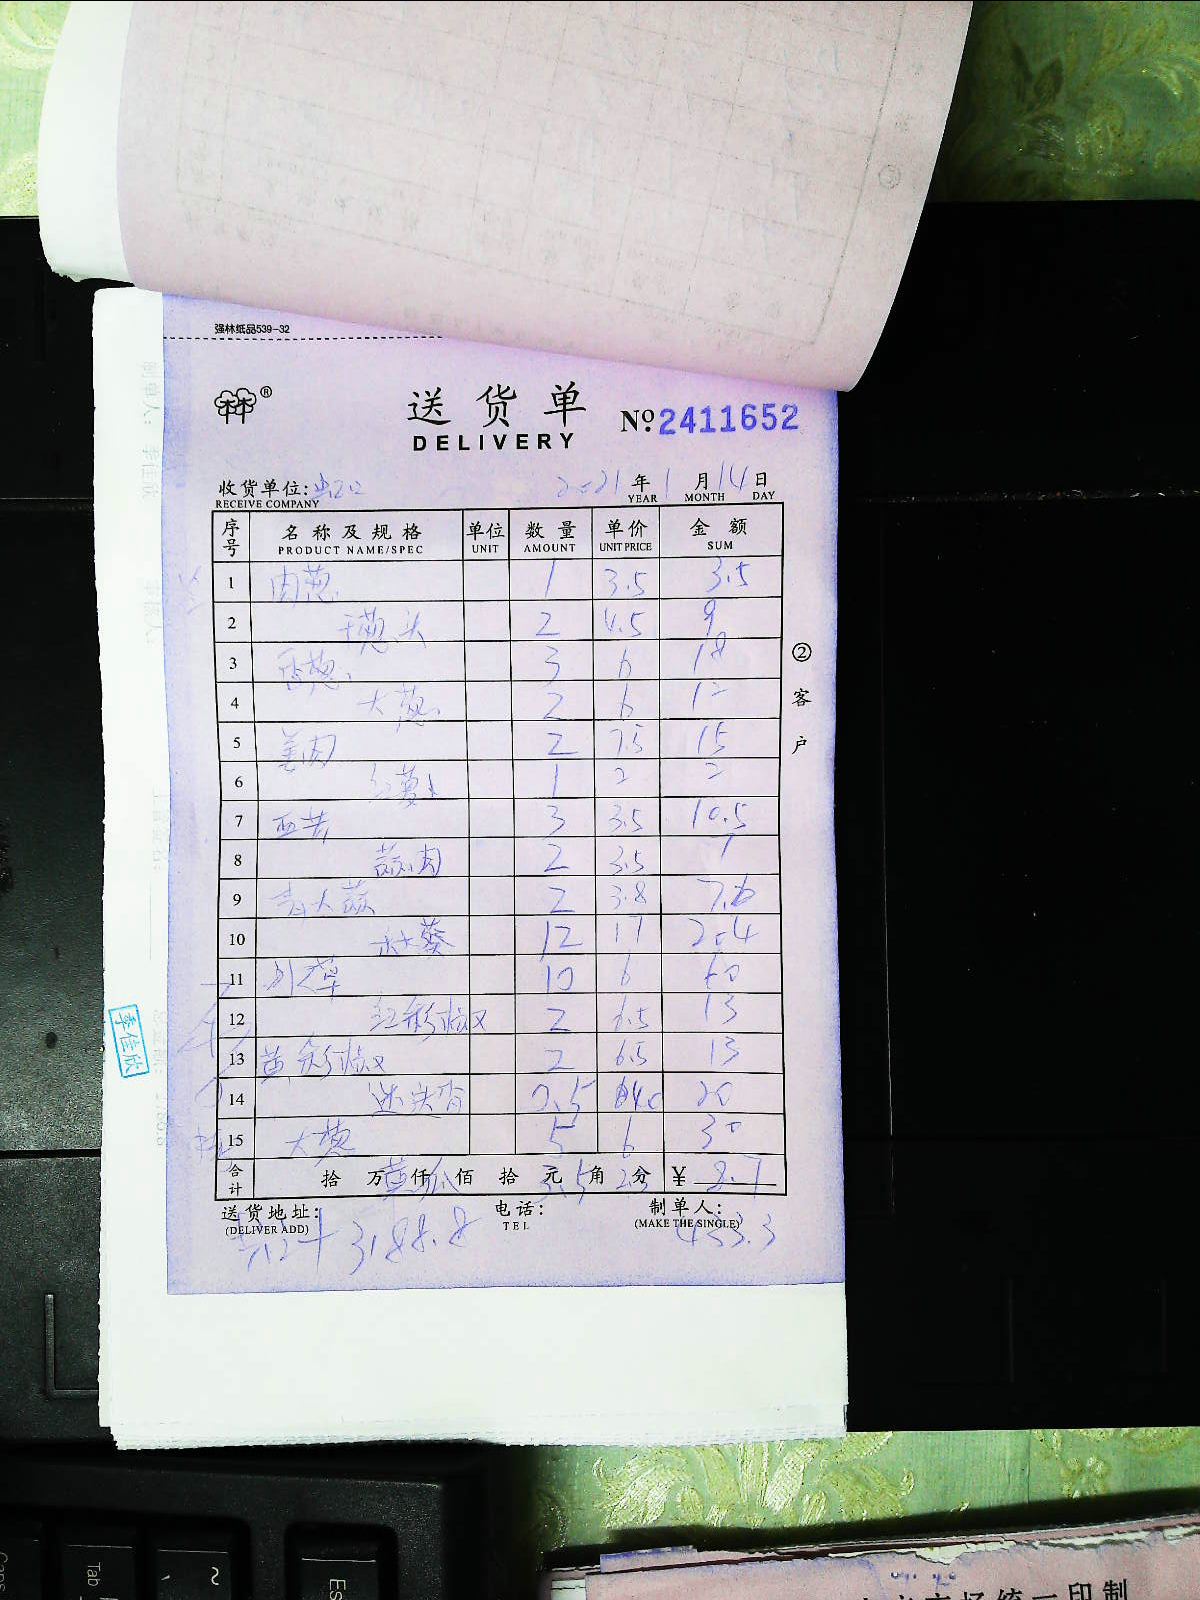 强林纸品539-32
送货单
DELIVERY
№ 2411652
收货单位:
RECEIVE COMPANY
2021年1月14日
YEAR MONTH DAY
序号 名称及规格 单位 数量 单价 金额
PRODUCT NAME/SPEC UNIT AMOUNT UNIT PRICE SUM
1 肉葱 1 3.5 3.5
2 干葱头 2 4.5 9
3 香葱 3 6 18
4 大葱 2 6 12
5 姜肉 2 7.5 15
6 红萝卜 1 2 2
7 西芹 3 3.5 10.5
8 蒜肉 2 3.5 7
9 青大蒜 2 3.8 7.6
10 秋葵 12 17 204
11 10 6 60
12 红彩椒 2 6.5 13
13 黄彩椒 2 6.5 13
14 迷迭香 0.5 40 20
15 大葱 5 6 30
合计 拾 万 仟 佰 拾 元 角 分 ¥ 8.7
3.5 2.5
送货地址:
(DELIVER ADD)
电话:
TEL
制单人:
(MAKE THE SINGLE)
3188.8
433.3
②客户
李佳欣
Tab
Caps
~
Es
市场统一印制